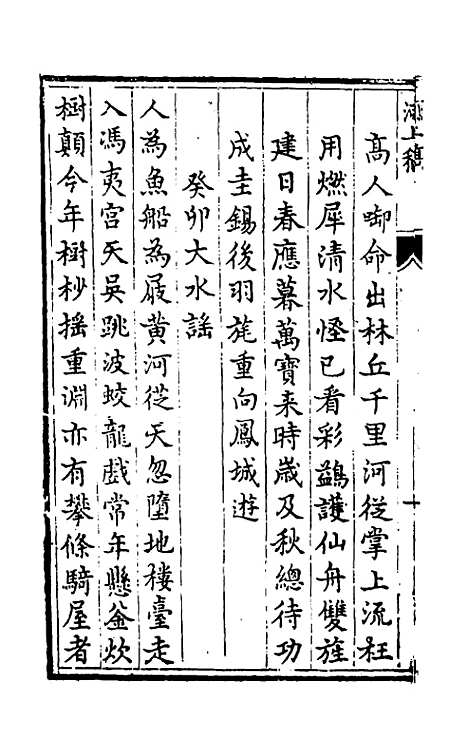 海上稿
高人啣命出林丘千里河從掌上流枉
用燃犀清水怪已看彩鷁護仙舟雙旌
建日春應暮萬寶来時歲及秋總待功
成圭錫後羽旄重向鳳城遊
癸卯大水謠
人為魚船為屐黄河從天忽墮地樓臺走
入馮夷宫天吳跳波蛟龍戲常年懸釜炊
樹顛今年樹杪揺重淵亦有攀條騎屋者